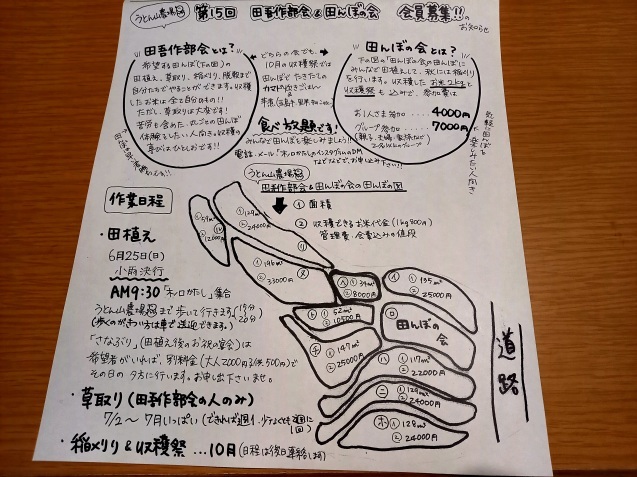 うどん山農場
第15回 田吾作部会&田んぼの会 会員募集!!の
お知らせ
田吾作部会とは?
希望する田んぼ(下の図)の
田植え、草取り、稲刈り、脱穀まで
自分たちでやることができます。収穫
したお米は全て自分のもの!!
ただし、草取りは大変です!
苦労も含めた、丸ごとの田んぼ
体験をしたい人向き。収穫の
喜びはひとしおです!!
どちらの会でも、
10月の収穫祭では
田んぼで たきたての
カマド炊きごはん
&
食べ放題です!
みんなで田んぼを楽しみましょう!!
電話、メール「ホノロかたし」のインスタグラムのDM
などなどで、お申し込み下さい!!
田んぼの会とは?
下の図の「田んぼの会の田んぼ」に
みんなで田植えして、秋には稲刈り
を行います。収穫したお米2kgと
収穫祭も込みで、参加費は
お1人さま参加 ‥‥ 4000円
グループ参加 ‥‥ 7000円
(親子、夫婦、家族など
気軽に田んぼを
楽しみたい人向き
うどん山農場
田吾作部会&田んぼの会の田んぼの図
① 面積
② 収穫できるお米代金(1kg800円)
管理費、会費込みの値段
作業日程
・田植え
6月25日(日)
小雨決行
AM9:30「ホノロかたし」集合
うどん山農場まで歩いて行きます(15分
20分)
(歩くのがきつい方は車で送迎できます。)
「さなぶり」(田植え後のお祝の宴会)は
希望者がいれば、別料金(大人2000円子供500円)で
その日の夕方に行います。お申し出下さいませ。
・草取り(田吾作部会の人のみ)
7/2〜7月いっぱい(できれば週1、少なくとも2週に
1回)
・稲刈り&収穫祭 …10月(日程は後日連絡します)
① 59m²
② 12000円
① 129m²
② 24000円
リ
① 196m²
② 33000円
ヌ
ヘ
① 39m²
② 8000円
イ
① 135m²
② 25000円
ト
① 52m²
② 10500円
ロ
田んぼの
会
チ
① 147m²
② 25000円
ハ
① 117m²
② 22000円
ニ
① 129m²
② 24000円
ホ
① 128m²
② 24000円
道路